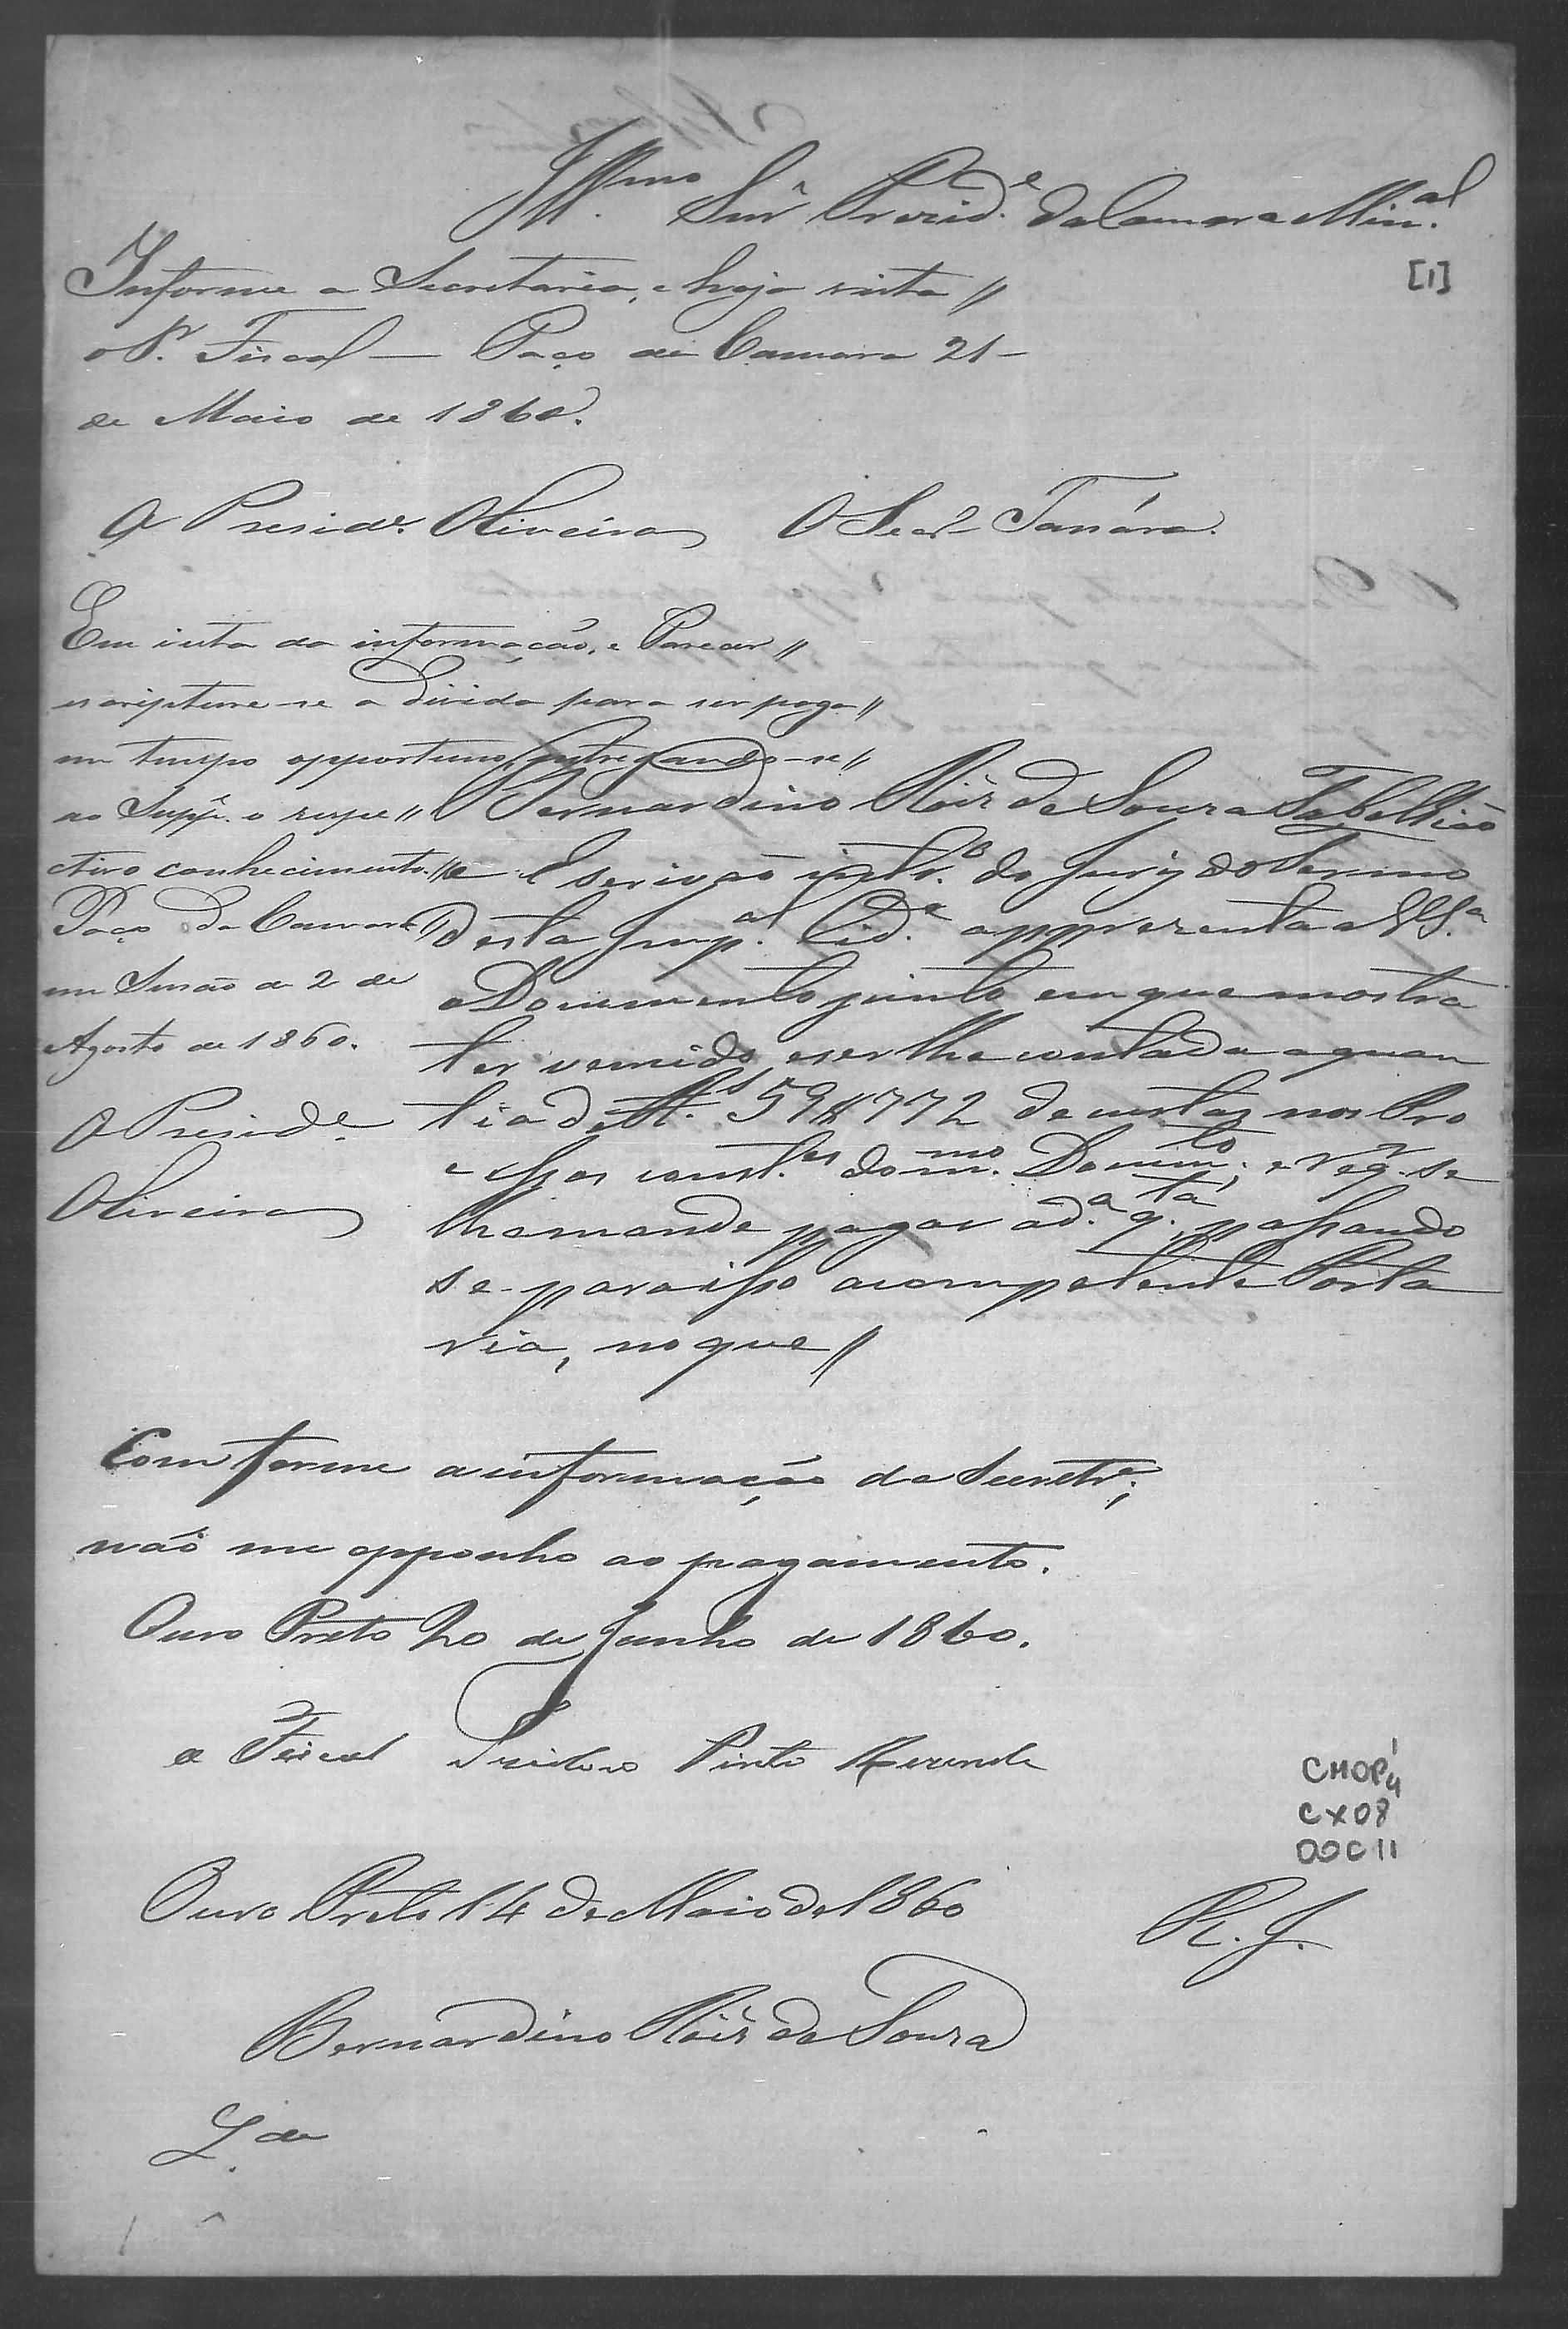 Illmo Snr Prezid.e da Camara Mun.al
[1]
Informe a Secretaria, e haja vista //
o Sr. Fiscal — Paço da Camara 21 –
de Maio de 1860.
O Presid.e Oliveira O Secr.
Em vista da informação, e Parecer //
escripture-se a divida para ser paga //
em tempo opportuno, entregando-se //
ao Supp.e o respe //
ctivo conhecimento. //
Paço da Camara
em Sessão de 2 de
Agosto de 1860.
O Presid.e
Oliveira
Bernardino Roiz de Souza Tabellião
e Escrivão intr.o do Jury do Termo
desta Imp.al Cid.e appresenta a VS.a
o Documento junto em que mostra
ter vencido, e ser lhe contada a quan
tia de R.s 59$772 de custas nos Pro
cessos const.es do m.mo Docum.to, e req.r se
lhe mande pagar a d.a q.tia, passando
se para isso a competente Porta
ria, no que //
Comforme a informação da Secretr.a;
não me opponho ao pagamento.
Ouro Preto 20 de Junho de 1860.
o Fiscal Izidoro Pinto Rezende
CMOP
CX08
DOC11
Ouro Preto 14 de Maio de 1860
R. J.
Bernardino Roiz de Souza